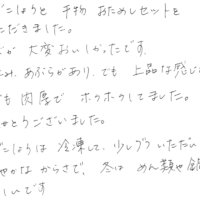 ごこしょうと 干物 おためしセットを
ただきました。
が 大変おいしかったです。
み、あぶらがあり、でも 上品な感じ
も 肉厚で ホクホクしてました。
とうございました。
ごこしょうは 冷凍して、少しづついただい
やかな からさで、冬は めん類や鍋
しいです